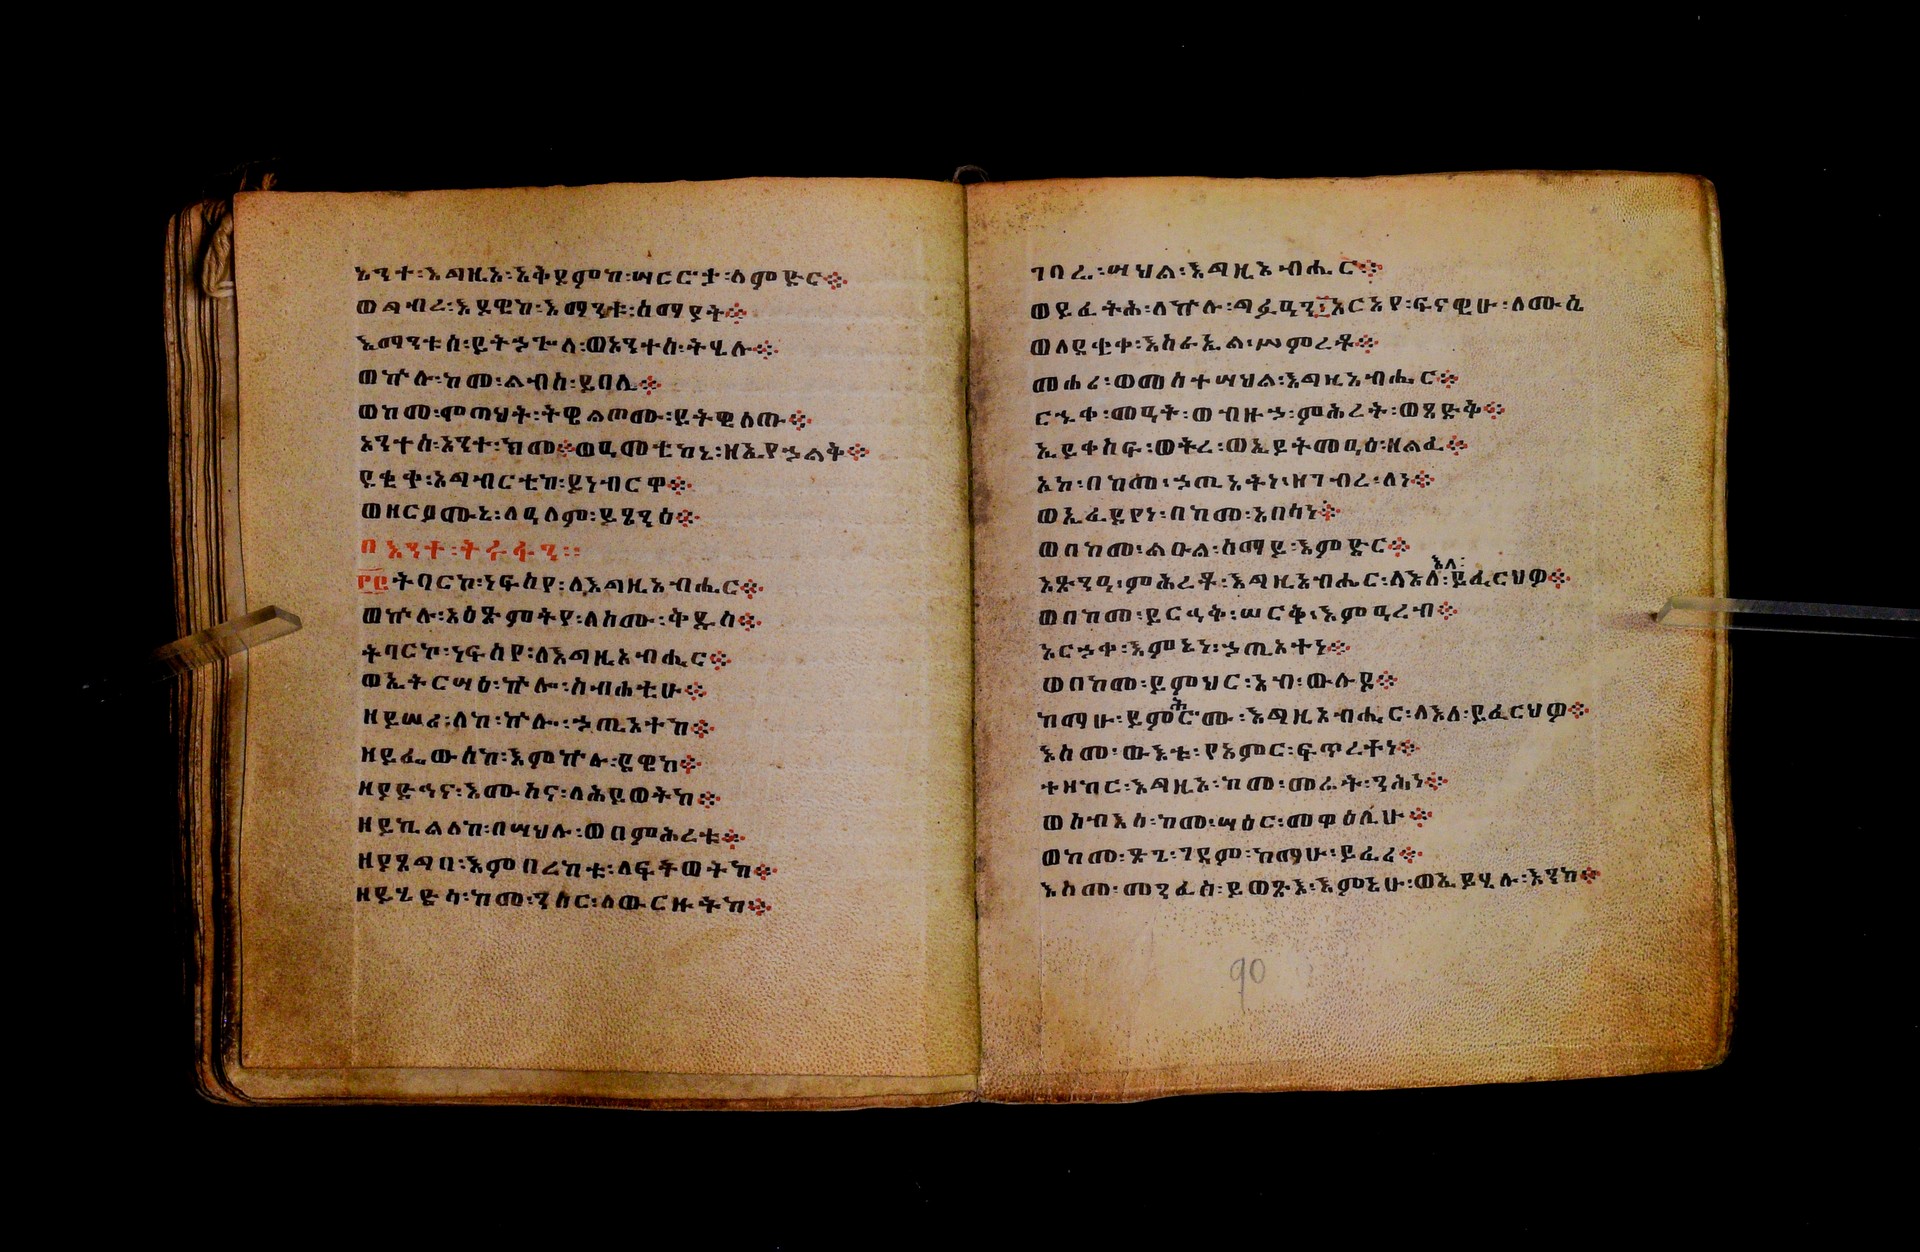 አንተ፡እግዚኦ፡አቅደምከ፡ሣርሮታ፡ለምድር፨
ወግብረ፡እደዊከ፡እማንቱ፡ሰማያት፨
እማንቱሰ፡ይትኃጐላ፡ወአንተሰ፡ትሄሉ፨
ወኵሉ፡ከመ፡ልብስ፡ይበሊ፨
ወከመ፡ሞጣህት፡ትዌልጦሙ፡ይትዌለጡ፨
አንተሰ፡አንተ፡ክመ፨ወዓመቲከኒ፡ዘኢየኃልቅ፨
ደቂቀ፡አግብርቲከ፡ይነብርዋ፨
ወዘርዖሙኒ፡ለዓለም፡ይጸንዕ፨
በእንተ፡ትሩፋን፡፡
፻፪ትባርኮ፡ነፍስየ፡ለእግዚአብሔር፨
ወኵሉ፡አዕጽምትየ፡ለስሙ፡ቅዱስ፨
ትባርኮ፡ነፍስየ፡ለእግዚአብሔር፨
ወኢትርሣዕ፡ኵሎ፡ስብሐቲሁ፨
ዘይሠሪ፡ለከ፡ኵሎ፡ኃጢአተከ፨
ዘይፌውሰከ፡እምኵሉ፡ደዌከ፨
ዘያድኅና፡እሙስና፡ለሕይወትከ፨
ዘይኬልለከ፡በሣህሉ፡ወበምሕረቱ፨
ዘያጸግባ፡እምበረከቱ፡ለፍትወትከ፨
ዘይሄድሳ፡ከመ፡ንስር፡ለውርዙትከ፨
ገባሬ፡ሣህል፡እግዚአብሔር፨
ወይፈትሕ፡ለኵሉ፡ግፉዓን፤አርአየ፡ፍናዊሁ፡ለሙሴ
ወለደቂቀ፡እስራኤል፡ሥምረቶ፨
መሐሪ፡ወመስተሣህል፡እግዚአብሔር፨
ርኁቀ፡መዓት፡ወብዙኃ፡ምሕረት፡ወጻድቅ፨
ኢይቀስፍ፡ወትረ፡ወኢይትመዓዕ፡ዘልፈ፨
አኮ፡በከመ፡ኃጢአትነ፡ዘገብረ፡ለነ፨
ወኢፈደየነ፡በከመ፡አበሳነ፨
ወበከመ፡ልዑል፡ሰማይ፡እምድር፨
አጽንዓ፡ምሕረቶ፡እግዚአብሔር፡ላእለ፡እለ፡ይፈርህዎ፨
ወበከመ፡ይርኅቅ፡ሠርቅ፡እምዓረብ፨
አርኃቀ፡እምኔነ፡ኃጢአተነ፨
ወበከመ፡ይምህር፡አብ፡ውሉደ፨
ከማሁ፡ይምሕሮሙ፡እግዚአብሔር፡ለእለ፡ይፈርህዎ፨
እስመ፡ውእቱ፡የአምር፡ፍጥረተነ፨
ተዘከር፡እግዚኦ፡ከመ፡መሬት፡ንሕነ፨
ወሰብእሰ፡ከመ፡ሣዕር፡መዋዕሊሁ፨
ወከመ፡ጽጌ፡ገዳም፡ከማሁ፡ይፈሪ፨
እስመ፡መንፈስ፡ይወጽእ፡እምኔሁ፡ወኢይሄሉ፡እንከ፨
90